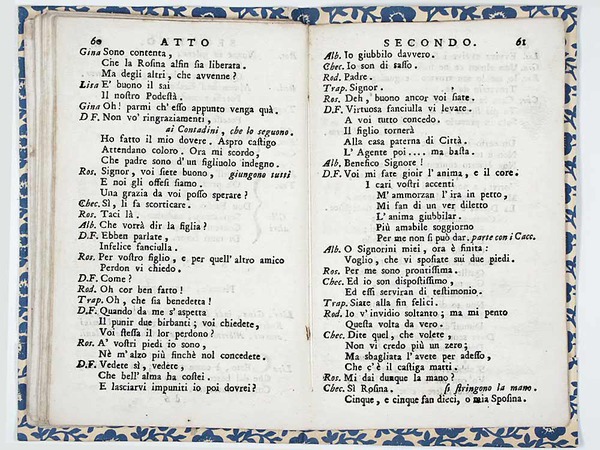 60 ATTO
Gina Sono contenta,
Che la Rosina alfin sia liberata.
Ma degli altri, che avvenne?
Lisa E' buono il sai
Il nostro Podestà.
Gina Oh! parmi ch' esso appunto venga quà.
D.F. Non vo' ringraziamenti,
ai Contadini, che lo seguono.
Ho fatto il mio dovere. Aspro castigo
Attendano coloro. Ora mi scordo,
Che padre sono d' un figliuolo indegno.
Ros. Signor, voi siete buono, giungono tutti
E noi gli offesi siamo.
Una grazia da voi posso sperare?
Chec. Sì, li fa scorticare.
Ros. Taci là.
Alb. Che vorrà dir la figlia?
D.F. Ebben parlate,
Infelice fanciulla.
Ros. Per vostro figlio, e per quell' altro amico
Perdon vi chiedo.
D.F. Come?
Rod. Oh cor ben fatto!
Trap. Oh, che sia benedetta!
D.F. Quando da me s' aspetta
Il punir due birbanti; voi chiedete,
Voi stessa il lor perdono?
Ros. A' vostri piedi io sono,
Nè m' alzo più finchè nol concedete.
D.F. Vedete sì, vedete,
Che bell' alma ha costei.
E lasciarvi impuniti io poi dovrei?
SECONDO. 61
Alb. Io giubbilo davvero.
Chec. Io son di sasso.
Rod. Padre.
Trap. Signor.
Ros. Deh, buono ancor voi siate.
D.F. Virtuosa fanciulla vi levate.
A voi tutto concedo.
Il figlio tornerà
Alla casa paterna di Città.
L' Agente poi.... ma basta.
Alb. Benefico Signore!
D.F. Voi mi fate gioir l' anima, e il core.
I cari vostri accenti
M' ammorzan l' ira in petto,
Mi fan di un ver diletto
L' anima giubbilar.
Più amabile soggiorno
Per me non si può dar. parte con i Cacc.
Alb. O Signorini miei, ora è finita:
Voglio, che vi sposiate sui due piedi.
Ros. Per me sono prontissima.
Chec. Ed io son dispostissimo,
Ed essi serviran di testimonio.
Trap. Siate alla fin felici.
Rod. Io v' invidio soltanto; ma mi pento
Questa volta da vero.
Chec. Dite quel, che volete,
Non vi credo più un zero;
Ma sbagliata l' avete per adesso,
Che c' è il castiga matti.
Ros. Mi dai dunque la mano?
Chec. Sì Rosina. si stringono la mano.
Cinque, e cinque fan dieci, o mia Sposina.